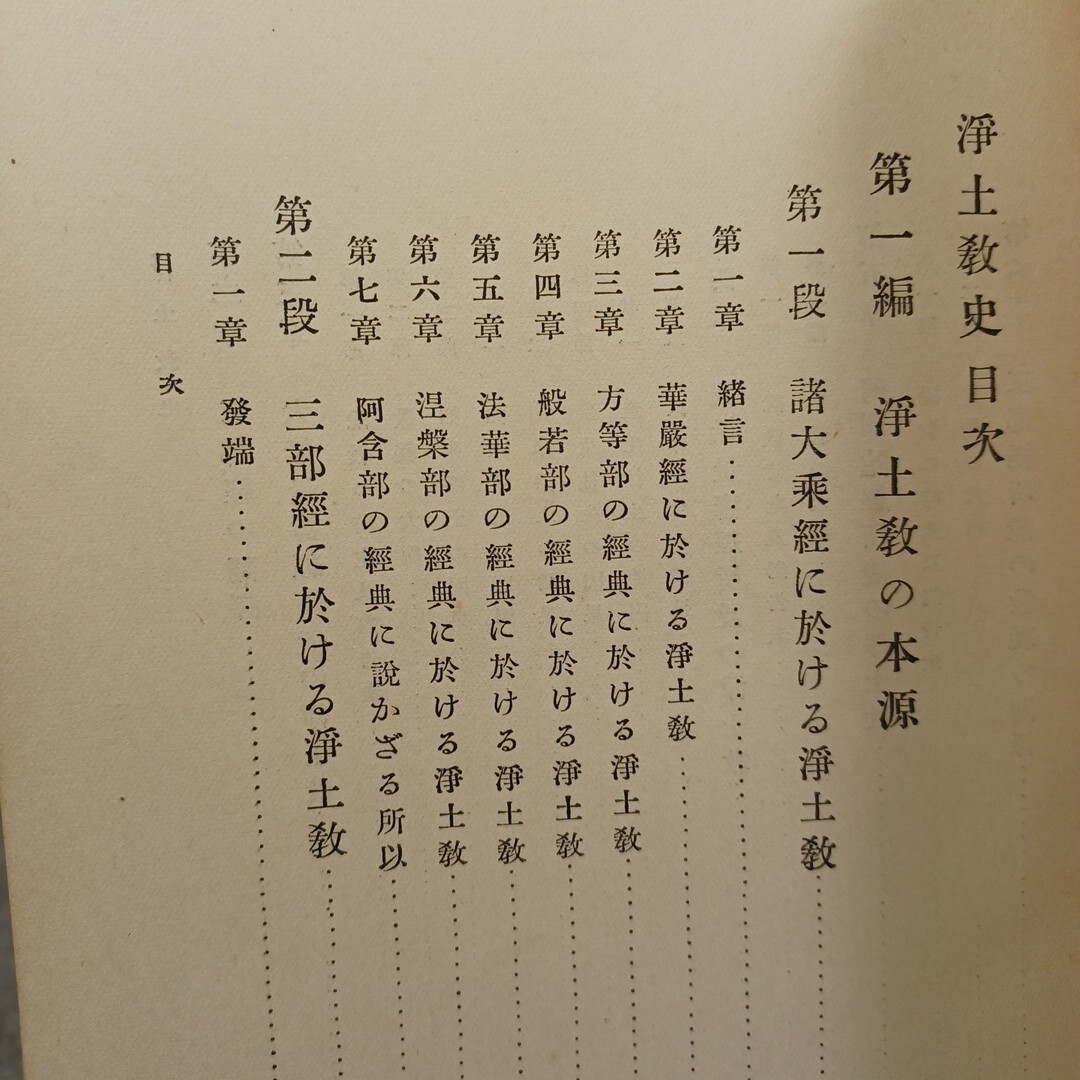 淨土敎史目次
第一編 淨土敎の本源
第一段 諸大乘經に於ける淨土敎
第一章 緒言
第二章 華嚴經に於ける淨土敎
第三章 方等部の經典に於ける淨土敎
第四章 般若部の經典に於ける淨土敎
第五章 法華部の經典に於ける淨土敎
第六章 涅槃部の經典に於ける淨土敎
第七章 阿含部の經典に說かざる所以
第二段 三部經に於ける淨土敎
第一章 發端
目次